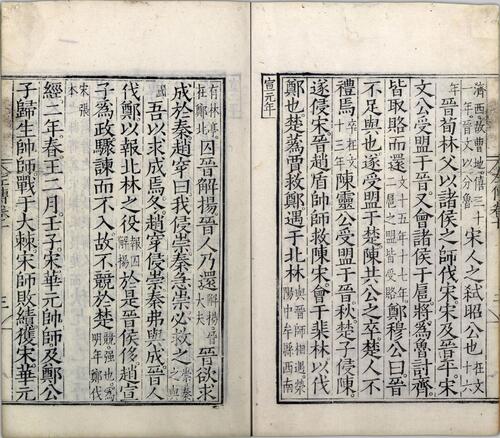 濟西故曹地僖三十一年晉文以分魯宋人之弑昭公也在文十六
年晉荀林父以諸侯之師伐宋宋及晉平宋
文公受盟于晉又會諸侯于扈將爲魯討齊
皆取賂而還文十五年十七年二扈之盟皆受賂鄭穆公曰晉
不足與也遂受盟于楚陳共公之卒楚人不
禮焉卒在文十三年陳靈公受盟于晉秋楚子侵陳
遂侵宋晉趙盾帥師救陳宋會于棐林以伐
鄭也楚蒍賈救鄭遇于北林與晉師相遇滎陽中牟縣西南
宣元年
有林亭在鄭北囚晉解揚晉人乃還解揚晉大夫晉欲求
成於秦趙穿曰我侵崇秦急崇必救之崇秦之與
國吾以求成焉冬趙穿侵崇秦弗與成晉人
伐鄭以報北林之役報囚解揚於是晉侯侈趙宣
子爲政驟諫而不入故不競於楚競強也爲明年鄭伐
宋張本
經二年春王二月壬子宋華元帥師及鄭公
子歸生帥師戰于大棘宋師敗績獲宋華元